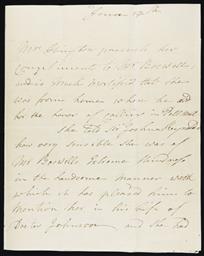 Mrs Abington presents her
Compliments to Mr Boswell
and is much mortified that she
was from home when he did
her the honor of calling in Pall Mall
She told Sir Joshua Reynolds
how very sensible she was of
Mr Boswells Extreme kindness
in the handsome manner with
which it has pleased him to
Mention her in his life of
Docter Johnson and she had